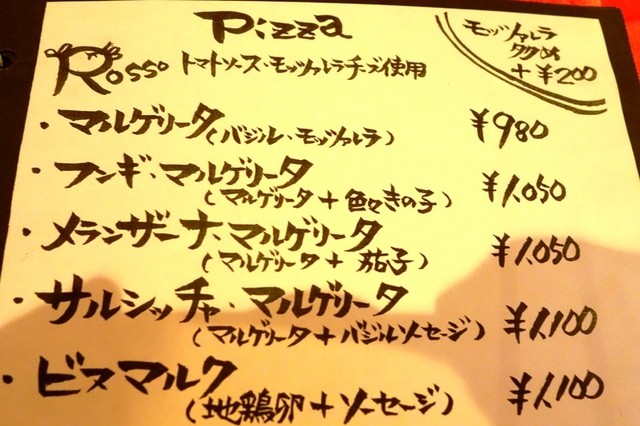 Pizza
モッツァレラ
タタめ
+¥200
Rosso トマトソース・モッツァレラチーズ使用
・マルゲリータ(バジル・モッツァレラ) ¥980
・フンギ・マルゲリータ ¥1,050
(マルゲリータ+色々きの子)
・メランザーナ・マルゲリータ ¥1,050
(マルゲリータ+茄子)
・サルシッチャ・マルゲリータ ¥1,100
(マルゲリータ+バジルソーセージ)
・ビスマルク ¥1,100
(地鶏卵+ソーセージ)